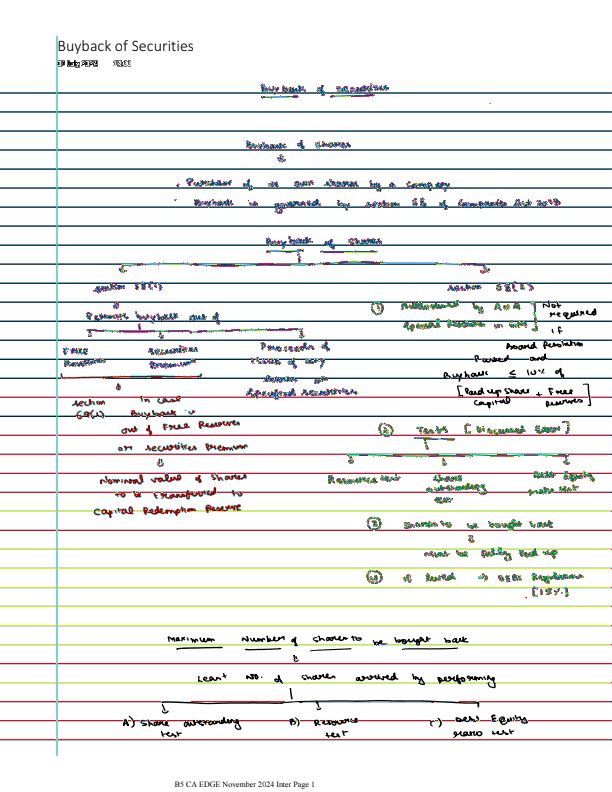 Buyback of Securities
Buyback of securities
Buyback of Shares
. Purchase of its own shares by a Company
. Buyback is governed by section 68 of Companies Act 2013
Buyback of Shares
section 68(1) section 68(2)
Permits buyback out of
Free Reserves
Securities Premium
Proceeds of
shares or any
Specified securities
① Authorised by AOA
Special Resolution in GM
Not
required
if
Board Resolution
Passed and
Buyback ≤ 10% of
[Paid up Share Capital + Free Reserves]
section
69(1)
in case
Buyback is
out of Free Reserves
or securities Premium
Nominal value of Shares
to be transferred to
Capital Redemption Reserve
② Tests [Discussed later]
Resource test
Share outstanding test
Debt Equity ratio test
③ Shares to be bought back
must be fully paid up
④ if listed → SEBI Regulations
[15%]
Maximum Number of Shares to be bought back
Least No. of shares arrived by performing
A) Share outstanding test
B) Resource test
C) Debt Equity ratio test
B5 CA EDGE November 2024 Inter Page 1